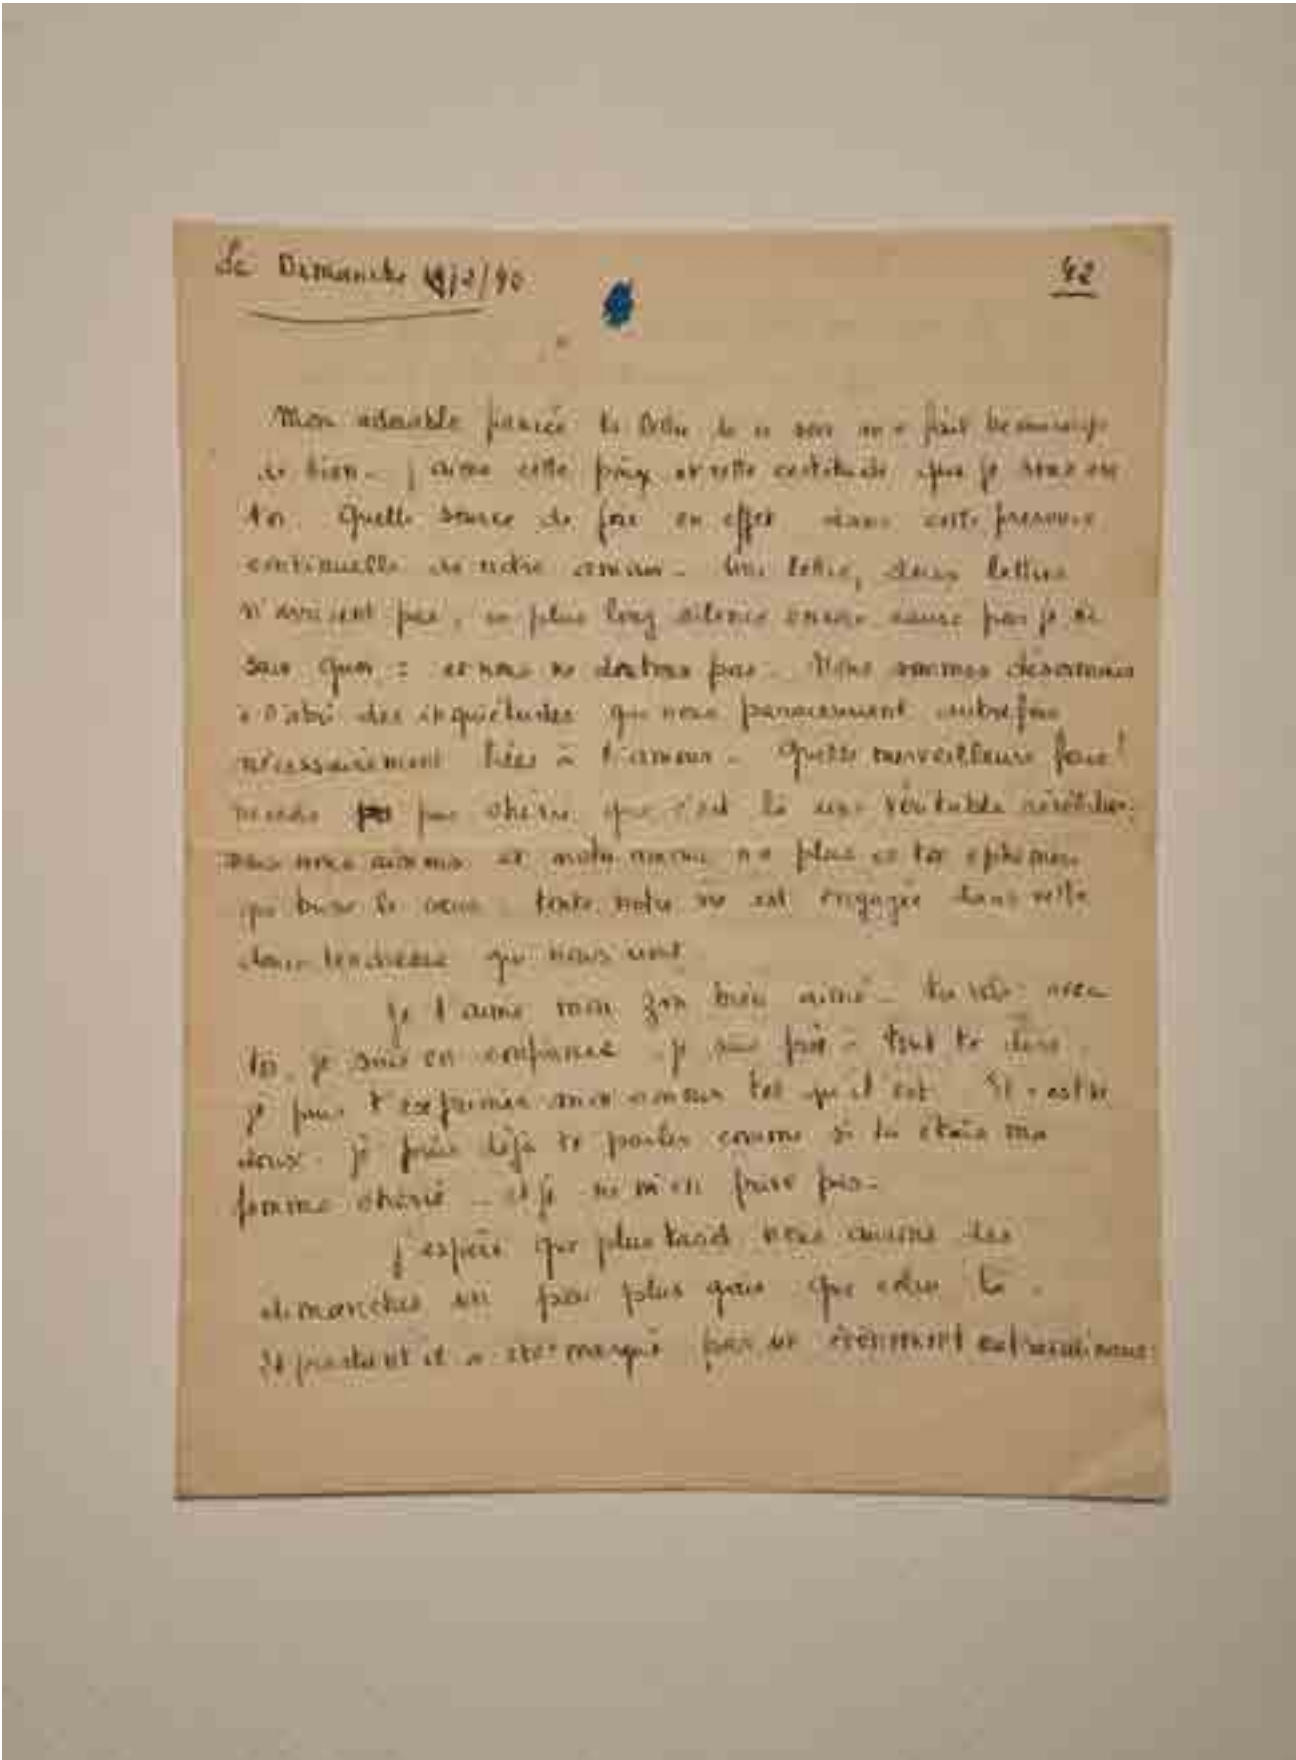 Le Dimanche /2/40
42
Mon adorable fiancée ta lettre de ce soir m'a fait beaucoup
de bien. j'aime cette paix et cette certitude que je sens en
toi. Quelle source de joie en effet dans cette présence
continuelle de notre amour. Une lettre, deux lettres
n'arrivent pas, un plus long silence encore causé par je ne
sais quoi : et nous ne doutons pas. Nous sommes désormais
à l'abri des inquiétudes qui nous paraissaient autrefois
nécessairement liées à l'amour. Quelle merveilleuse
pas chérie que c'est là une véritable
nous nous aimons et notre amour n'a plus ce ton éphémère
qui brise le cœur. toute notre vie est engagée dans cette
douce tendresse qui nous unit.
Je t'aime mon bien aimé. tu vois avec
toi, je suis en confiance. je suis prêt à tout te dire.
je puis t'exprimer mon amour tel qu'il est. Et c'est
doux. je puis déjà te parler comme si tu étais ma
femme chérie. et je ne m'en prive pas.
J'espère que plus tard nous aurons des
dimanches un peu plus gais que celui là.
Et pourtant il a été marqué par un évènement extraordinaire: